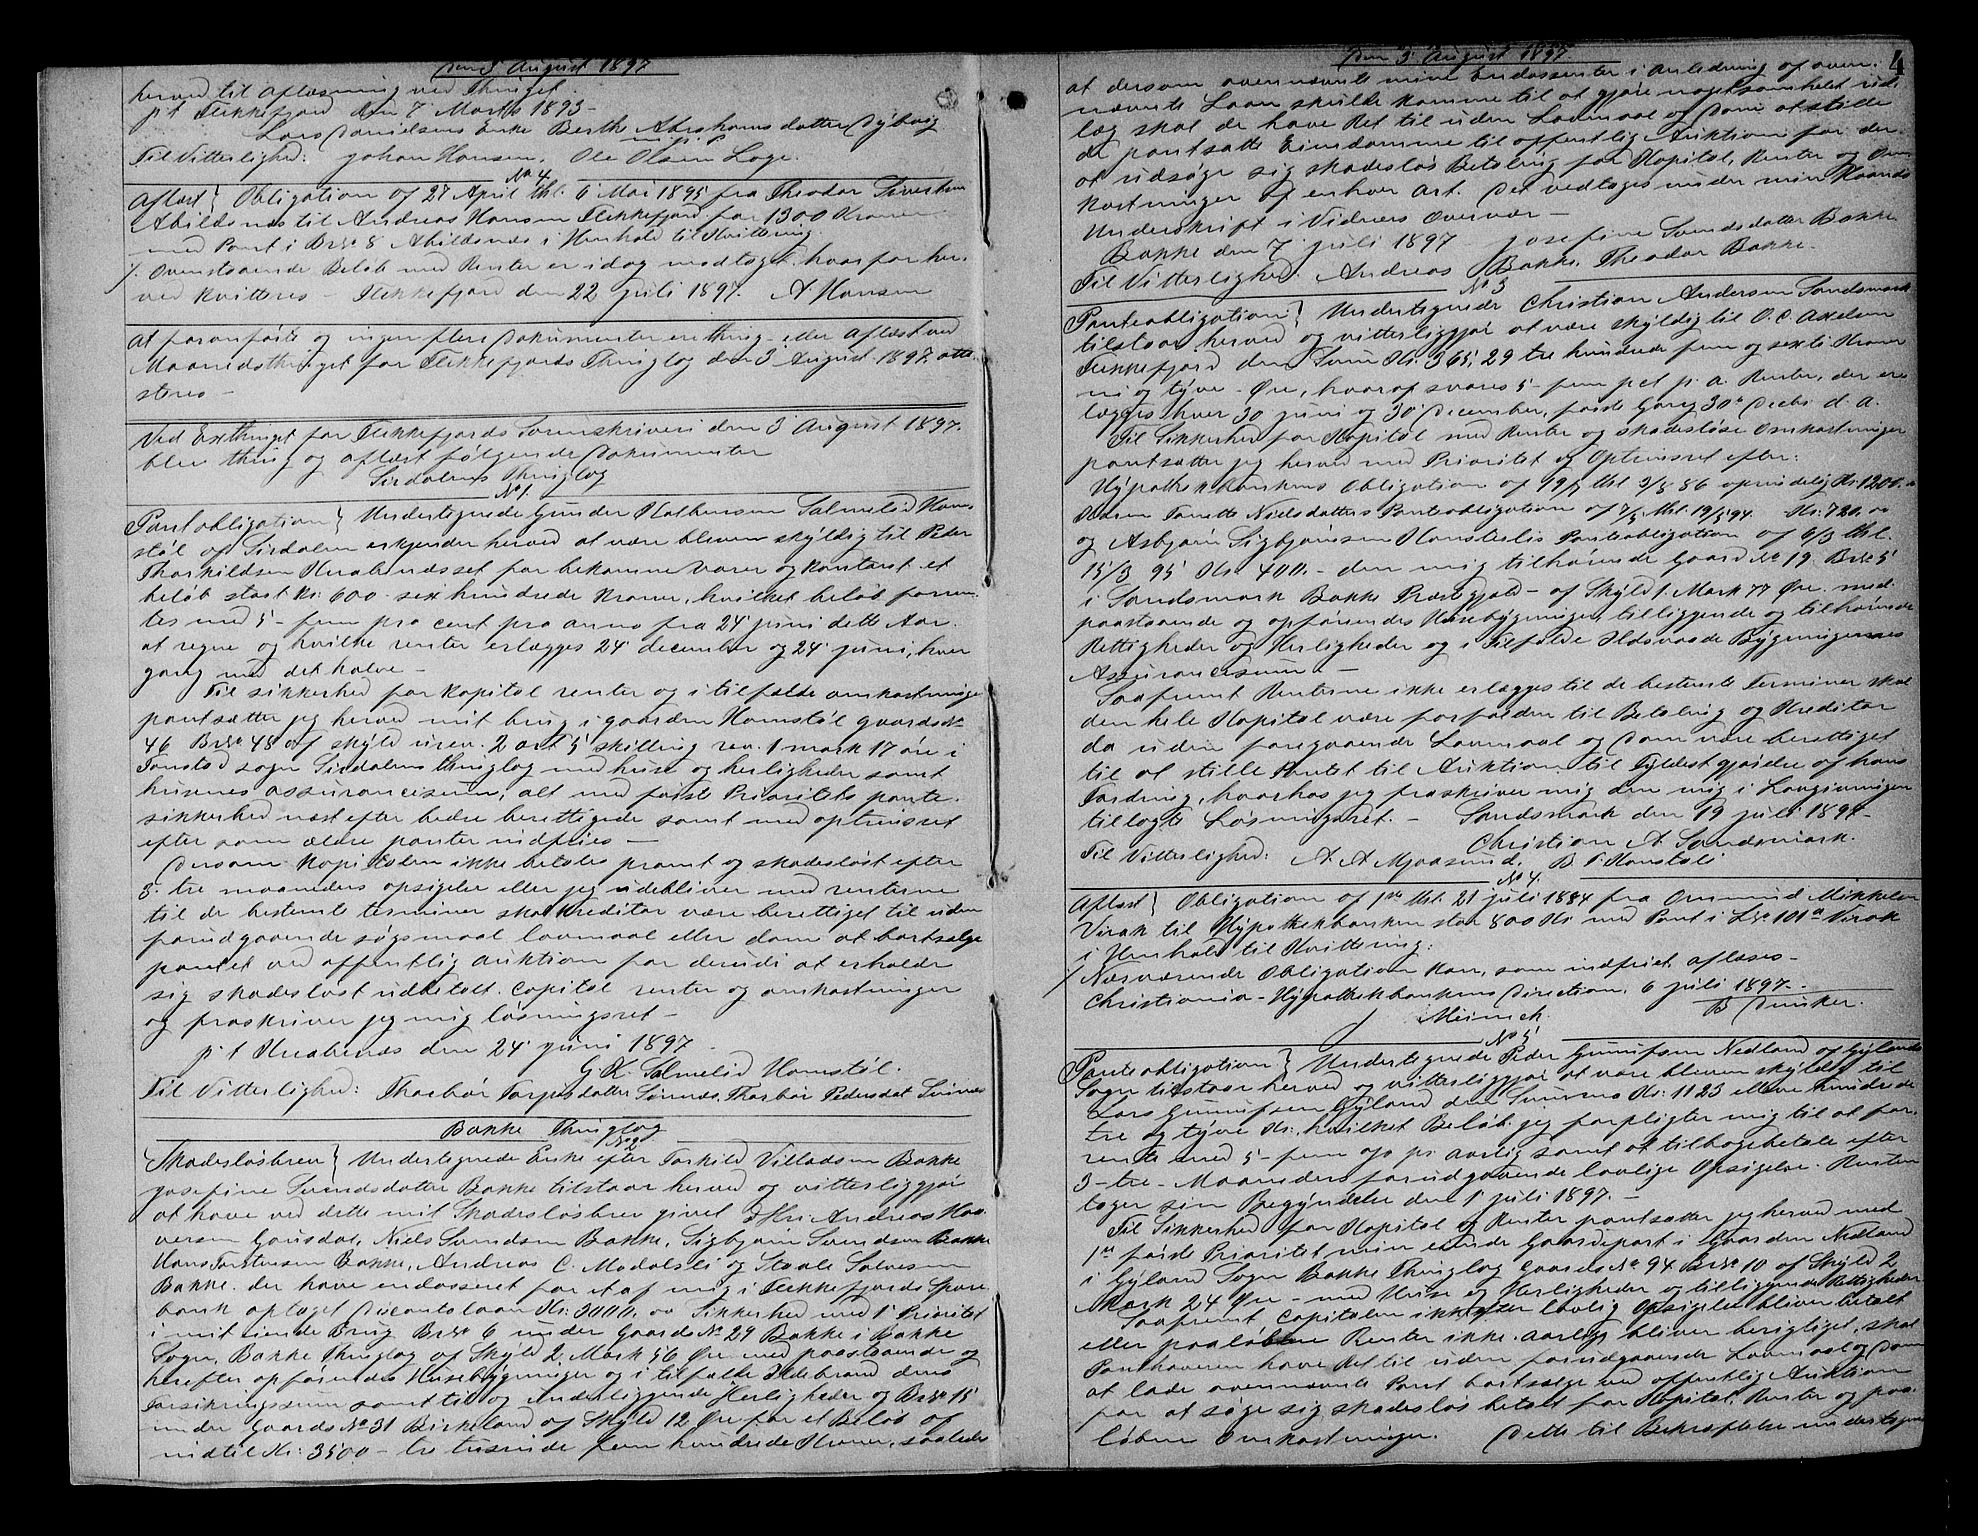 Den 3 August 1897
herved til Aflæsning ved Thinget.
p.t. Flekkefjord den 7 Marts 1893 -
Lars Davidsens Enke Berthe Abrahamsdatter Dybvig
m. f. P.
Til Vitterlighed: Johan Hansen. Ole Olsen Loge.
No 4
Aflæst } Obligation af 27 April thl. 6 Mai 1895 fra Theodor Sivertsen
Abildsnæs til Andreas Hansen Flekkefjord for 1300 Kroner
med Pant i Brno 8 Abildsnæs i Henhold til Kvittering.
/. Ovenstaaende Beløb med Renter er idag modtaget hvorfor her-
ved kvitteres - Flekkefjord den 22 juli 1897. A Hansen
At foranførte og ingen flere Dokumenter ere thing- eller aflæst ved
Maanedsthinget for Flekkefjords Thinglag den 3 August 1897 atte-
steres -
Ved Extthinget for Flekkefjords Sorenskriveri den 3 August 1897.
blev thing og aflæst følgende Dokumenter
Sirdalens Thinglag
No 1.
Pantobligation } Undertegnede Gunder Kathensen Salmelid Hom-
støl af Sirdalen erkjender herved at være bleven skyldig til Peder
Thorkildsen Knabenæsset for bekomne varer og kontant et
beløb stort Kr: 600 sex hundrede Kroner, hvilket beløb forren-
tes med 5 - fem pro cent pro anno fra 24 juni dette Aar
at regne og hvilke renter erlægges 24 december og 24 juni, hver
gang med det halve -
Til sikkerhed for kapital renter og i tilfælde omkostninger
pantsætter jeg herved mit brug i gaarden Homstøl gaards No
46 Brno 48 af skyld urev. 2 ort 5 skilling rev. 1 mark 17 øre i
Tonstad sogn Sirdalens thinglag med huse og herligheder samt
husenes assurancesum, alt med første Prioritets pante-
sikkerhed næst efter bedre berettigede samt med optrinsret
efter som ældre panter indfries -
Dersom Kapitalen ikke betales promt og skadesløst efter
3 - tre maaneders opsigelse eller jeg udebliver med renterne
til de bestemte terminer skal Kreditor være berettiget til uden
forudgaaende søgsmaal lovmaal eller dom at bortsælge
pantet ved offentlig auktion for derudi at erholde
sig skadesløst udbetalt Capital renter og omkostninger
og fraskriver jeg mig løsningsret -
p. t Knabenæs den 24 juni 1897
G. K. Salmelid Homstøl.
Til Vitterlighed: Thorbør Torpesdatter Sirnes, Thorbør Pedersdat Sirnes
Bakke Thinglag
No 2
Skadesløsbrev } Undertegnede Enke efter Torkild Villadsen Bakke
Josefine Svendsdatter Bakke tilstaar herved og vitterliggjør
at have ved dette mit Skadesløsbrev givet D'Hrr: Andreas Haa-
versen Gausdal, Niels Svendsen Bakke, Sigbjørn Svendsen Bakke
Hans Torstensen Bakke, Andreas C. Modalsli og Staale Salvesen
Bakke. der have endosseret for et af mig i Flekkefjords Spare-
bank optaget Discontolaan Kr. 3000.00 Sikkerhed med 1ste Prioritet
i mit eiende Brug Brno 6 under Gaards No 29 Bakke i Bakke
Sogn, Bakke Thinglag af Skyld 2 Mark 56 Øre med paastaaende og
herefter opførendes Husebygninger og i tilfælde Ildebrand deres
Forsikringssum samt til og underliggende Herligheder og Brno 15
under Gaards No 31 Birkeland af Skyld 12 Øre for et Beløb af
indtil Kr: 3500 - tre tusinde fem hundrede Kroner, saaledes
Den 3 August 1897.
4
at dersom ovennævnte mine Endossenter i Anledning af oven-
nævnte Laan skulde komme til at gjøre nogetsomhelst ud-
læg skal de have Ret til uden Lovmaal og Dom at stille
de pantsatte Eiendomme til offentlig Auktion for der-
at udsøge sig skadesløs Betaling for Kapital, Renter og Om-
kostninger af enhver Art. Det vedtages under min Haands
Underskrift i Vidners Overvær -
Bakke den 7 juli 1897 Josefine Svendsdatter Bakke
Til Vitterlighed: Andreas Bakke. Theodor Bakke.
No 3
Panteobligation } Undertegnede Christian Andersen Sandsmark
tilstaar herved og vitterliggjør at være skyldig til O. C. Axelsen
Flekkefjord den Sum Kr. 365,29 tre hundrede fem og sexti Kroner
ni og tyve - Øre, hvoraf svares 5 - fem pct p. a. Renter, der er-
lægges hver 30 juni og 30 December, første Gang 30te Decbr d. A.
Til Sikkerhed for Kapital med Renter og skadesløse Omkostninger
pantsætter jeg herved med Prioritet og Optrinsret efter:
Hypothekbankens Obligation af 19/7 thl 3/8 86 oprindelig Kr 1200.00
Karen Tonette Nielsdatters Panteobligation af 7/5 thl. 19/5 94. Kr. 720.00
og Asbjørn Sigbjørnsen Honstelis Panteobligation af 6/3 thl.
15/3 95 Kr. 400. - den mig tilhørende Gaard No 19 Brno 5
i Sandsmark Bakke Præstegjeld - af Skyld 1 Mark 77 Øre med
paastaaende og opførendes Husebygninger, tilliggende og tilhørende
Rettigheder og Herligheder og i Tilfælde Ildsvaade Bygningernes
Assurancesum -
Saafremt Renterne ikke erlægges til de bestemte Terminer skal
den hele Kapital være forfalden til Betaling og Kreditor
da uden foregaaende Lovmaal og Dom være berettiget
til at stille Pantet til Auktion til Fyldestgjørelse af hans
Fordring, hvorhos jeg fraskriver mig den mig i Lovgivningen
tillagte Løsningsret. - Sandsmark den 19 juli 1897 -
Christian A. Sandsmark.
Til Vitterlighed: A. A Mjaasund, B S Honsteli
No 4.
Aflæst } Obligation af 1ste thl. 21 juli 1884 fra Ommund Mikkelsen
Virak til Hypothekbanken stor 800 Kr med Pant i Lno 101a Virak
i Henhold til Kvittering:
/ Nærværende Obligation kan, som indfriet aflæses -
Christiania - Hypothekbankens Direction, 6 juli 1897 -
Meinich B Dunker.
No 5
Panteobligation } Undertegnede Peder Gunufsen Nedland af Gylands
Sogn tilstaar herved og vitterliggjør at være bleven skyldig til
Lars Gunufsen Gyland den Summa Kr: 1123 elleve hundrede
tre og tyve Kr., hvilket Beløb jeg forpligter mig til at for-
rente med 5 - fem o/o pr aarlig samt at tilbagebetale efter
3 - tre - Maaneders forudgaaende lovlige Opsigelse. Renten
tager sin Begyndelse den 1 juli 1897. -
Til Sikkerhed for Kapital og Renter pantsætter jeg herved med
1ste første Prioritet min eiende Gaardepart i Gaarden Nedland
i Gyland Sogn Bakke Thinglag Gaards No 94 Brno 10 af Skyld 2
Mark 24 Øre - med Huse og Herligheder og tilliggende Rettigheder
Saafremt Capitalen ikke efter lovlig Opsigelse bliver betalt
eller paaløbne Renter ikke aarlig bliver berigtiget, skal
Panthaveren have Ret til uden forudgaaende Lovmaal og Dom
at lade ovennævnte Pant bortsælge ved offentlig Auktion
for at søge sig skadesløs betalt for Kapital, Renter og paa-
løbne Omkostninger. Dette til Bekræftelse undertegnes